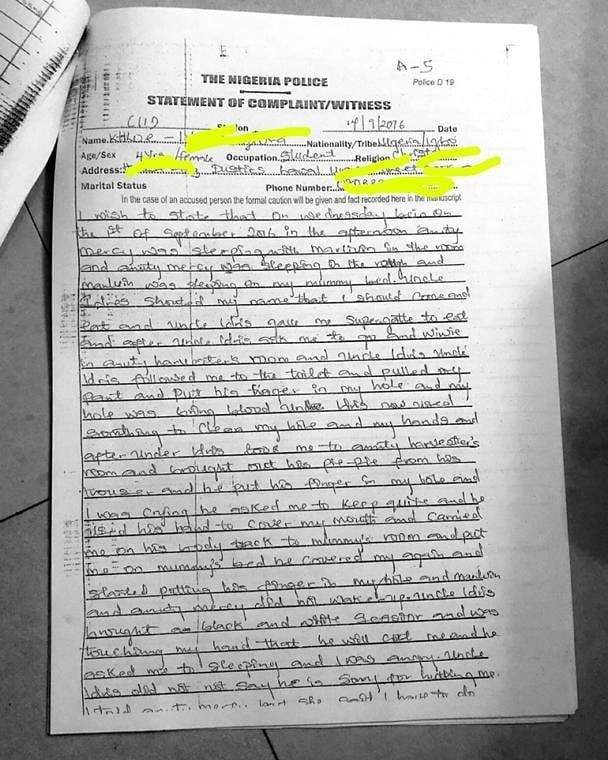 A-5
THE NIGERIA POLICE
Police D 19
STATEMENT OF COMPLAINT/WITNESS
CIID 7/9/2016 Date
Name Nationality/Tribe Nigeria/Igbo
Age/Sex 4 Yrs female Occupation Student Religion
Address:
Marital Status Phone Number:
In the case of an accused person the formal caution will be given and fact recorded here in the manuscript
I wish to state that on wednesday being on
the 1st of September 2016 in the afternoon aunty
mercy was sleeping with in the room
and aunty mercy was sleeping on the and
was sleeping on my mummy bed. Uncle
Idris shouted my name that I should come and
eat and uncle Idris gave me to eat
and after uncle Idris ask me to go and
in aunty room and uncle Idris uncle
Idris followed me to the toilet and pulled my
pant and put his finger in my hole and my
hole was bring blood Idris now used
something to clean my hole and my hands and
after Idris took me to aunty
room and brought out his pie-pie from his
trouser and he put his finger in my hole and
I was crying he asked me to keep quite and he
used his hand to cover my mouth and carried
me on his body back to mummy's room and put
me on mummy's bed he covered my again and
started putting his finger in my hole and
and aunty mercy did not wake-up. uncle Idris
brought a black and white and was
touching my hand that he will cut me and he
asked me to sleeping and I was angry. Uncle
Idris did not not say he is sorry for me.
I told but she said I have to do